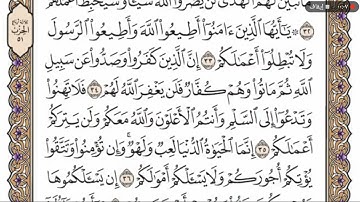 مَا تَبَيَّنَ لَهُمُ ٱلْهُدَىٰ لَن يَضُرُّوا۟ ٱللَّهَ شَيْـًٔا وَسَيُحْبِطُ أَعْمَـٰلَهُمْ
٣٢ ۞ يَـٰٓأَيُّهَا ٱلَّذِينَ ءَامَنُوٓا۟ أَطِيعُوا۟ ٱللَّهَ وَأَطِيعُوا۟ ٱلرَّسُولَ
وَلَا تُبْطِلُوٓا۟ أَعْمَـٰلَكُمْ ٣٣ إِنَّ ٱلَّذِينَ كَفَرُوا۟ وَصَدُّوا۟ عَن سَبِيلِ
ٱللَّهِ ثُمَّ مَاتُوا۟ وَهُمْ كُفَّارٌ فَلَن يَغْفِرَ ٱللَّهُ لَهُمْ ٣٤ فَلَا تَهِنُوا۟
وَتَدْعُوٓا۟ إِلَى ٱلسَّلْمِ وَأَنتُمُ ٱلْأَعْلَوْنَ وَٱللَّهُ مَعَكُمْ وَلَن يَتِرَكُمْ
أَعْمَـٰلَكُمْ ٣٥ إِنَّمَا ٱلْحَيَوٰةُ ٱلدُّنْيَا لَعِبٌ وَلَهْوٌ ۚ وَإِن تُؤْمِنُوا۟ وَتَتَّقُوا۟
يُؤْتِكُمْ أُجُورَكُمْ وَلَا يَسْـَٔلْكُمْ أَمْوَٰلَكُمْ ٣٦ إِن يَسْـَٔلْكُمُوهَا